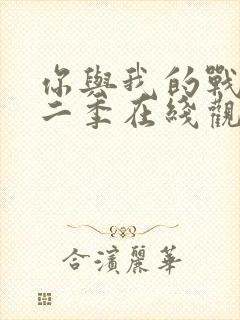 你與我的戰
二季在綫觀
合濱麗華